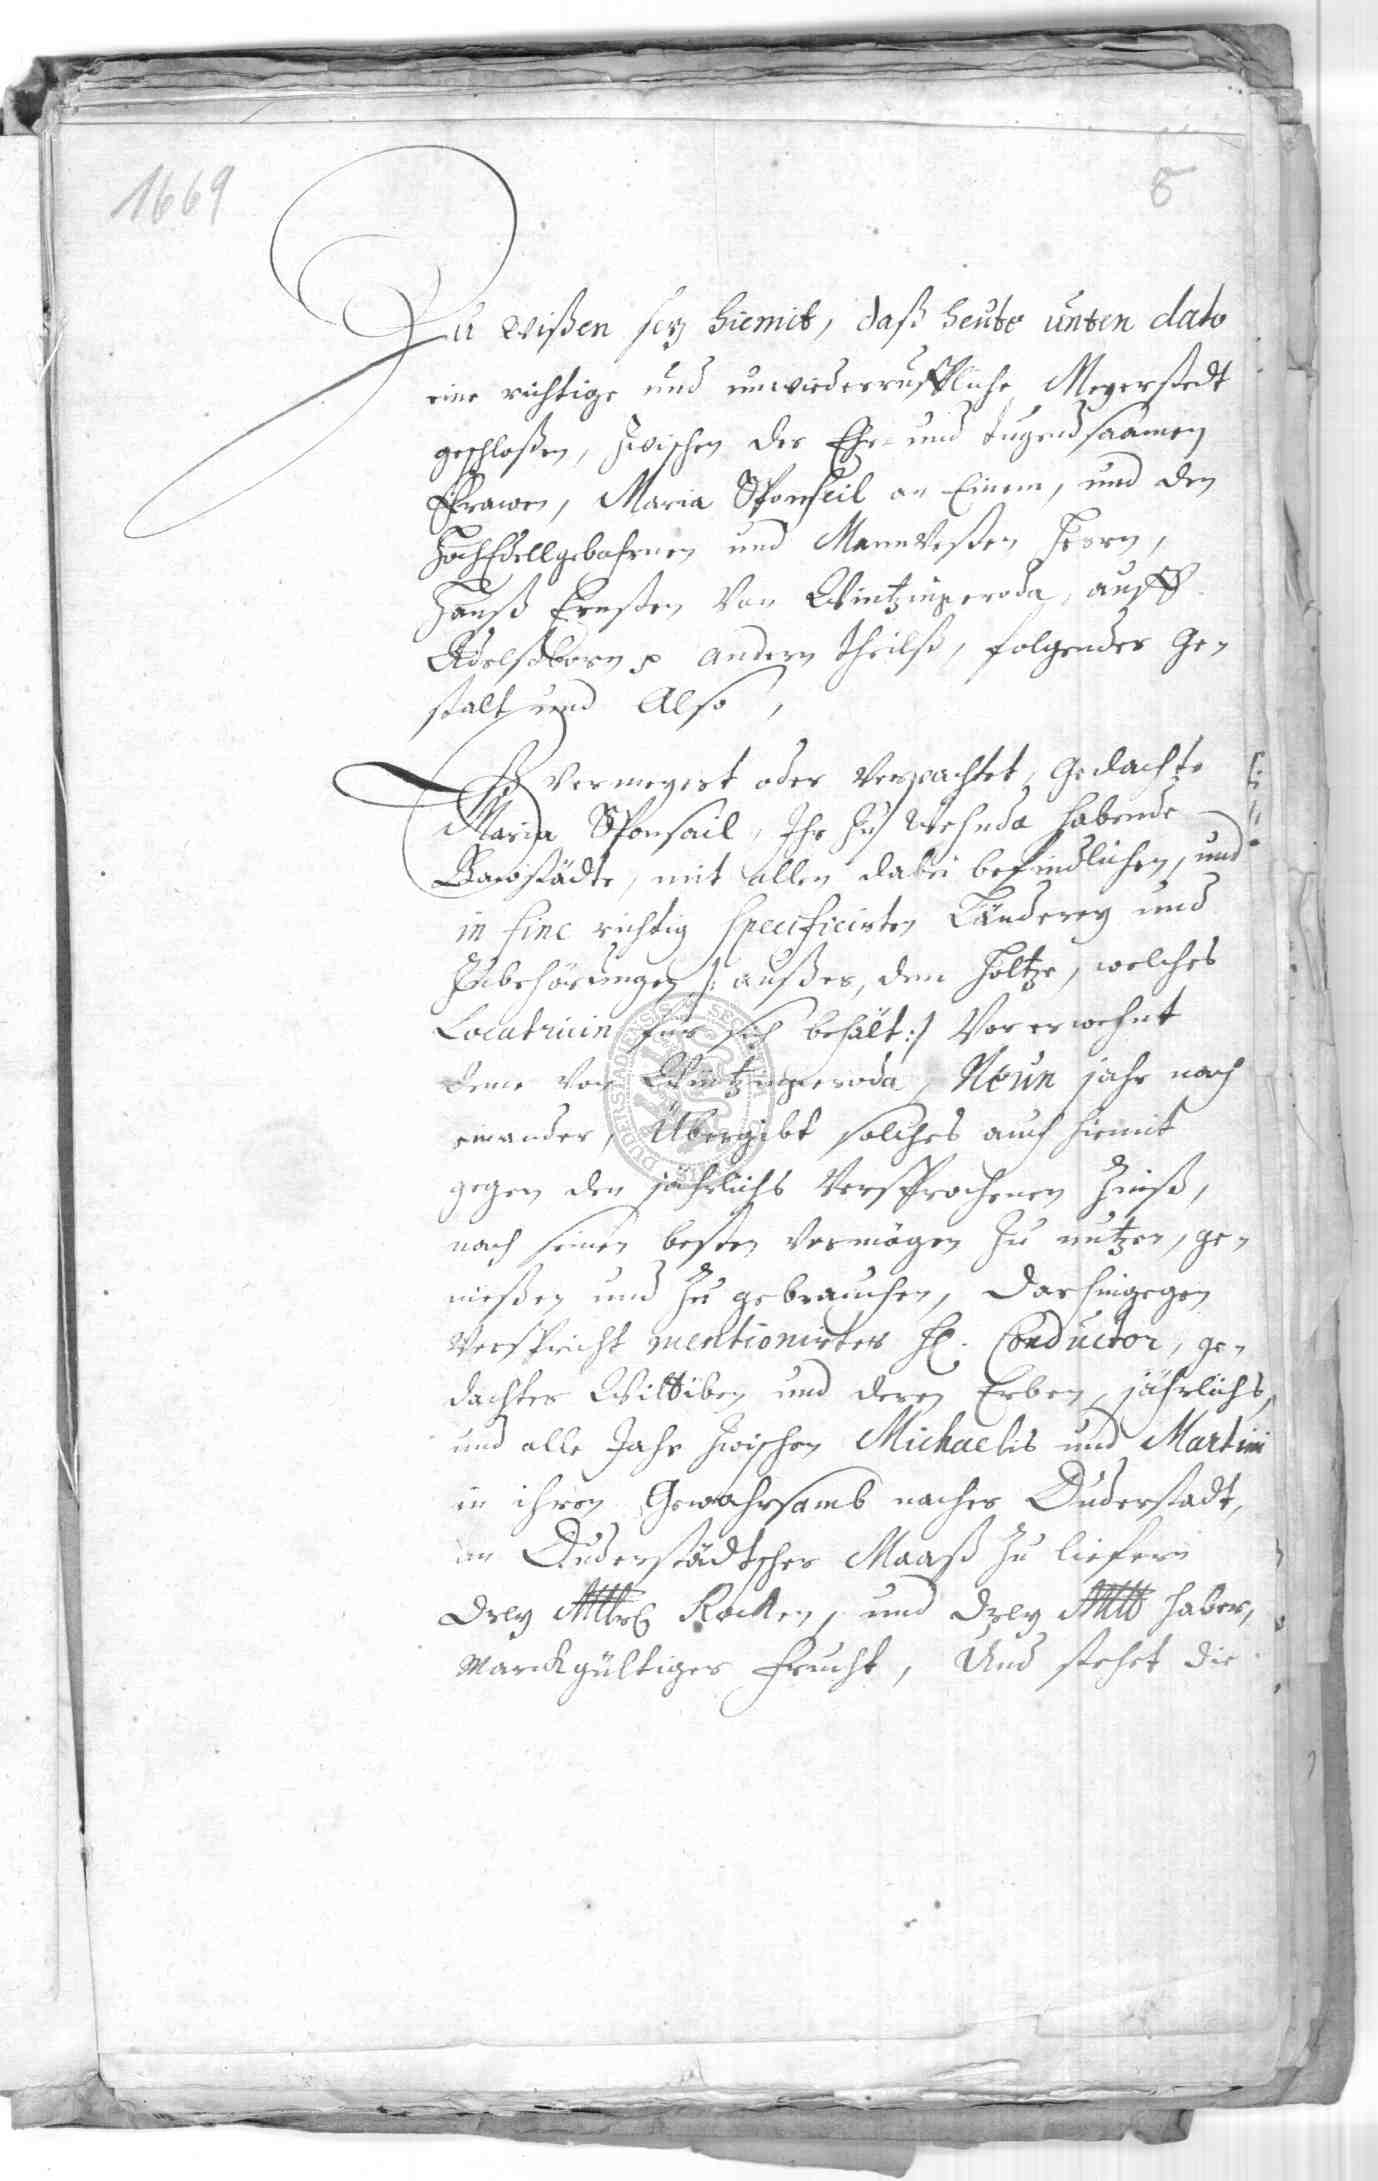 1669
8
Zu wißen sey hiemit, daß heute unten dato
eine richtige und unwiederruffliche Meyerstedt
geschloßen, zwischen der Ehr- und tugendsaamen
Frawen, Maria Sponseil an Einem, und den
HochEdellgebohrnen und Mannvesten Herrn,
Hanß Ernsten Von Wintzingeroda, auff
Adelsborn p andern theilß, folgender Ge-
stalt und Also,
Eß vermeyert oder Verpachtet, gedachte
Maria Sponsail, Ihr zu Wehnda habende
Bawstädte, mit allen dabei befindlichen, und
in fine richtig specificirten Länderey und
Zubehörungen /: außer, dem Holtze, welches
Locatricin für sich behält :/ Vor erwehnt
deme von Wintzingeroda, Neun jahr nach
einander, Übergibt solches auch hiemit
gegen den jährlichs Versprochenen Zinß,
nach seinen besten Vermögen zu nutzen, ge-
nießen und zu gebrauchen, Dar hingegen
Verspricht mentionirter H. Conductor, ge-
dachter Wittiben und deren Erben, jährlichs,
und alle Jahr zwischen Michaelis und Martini
in ihren Gewahrsamb nacher Duderstadt,
an Duderstädtscher Maaß zu liefern
Drey Mltr Rocken, und Drey Mltr haber,
Marckgültiger Frucht, Und stehet die